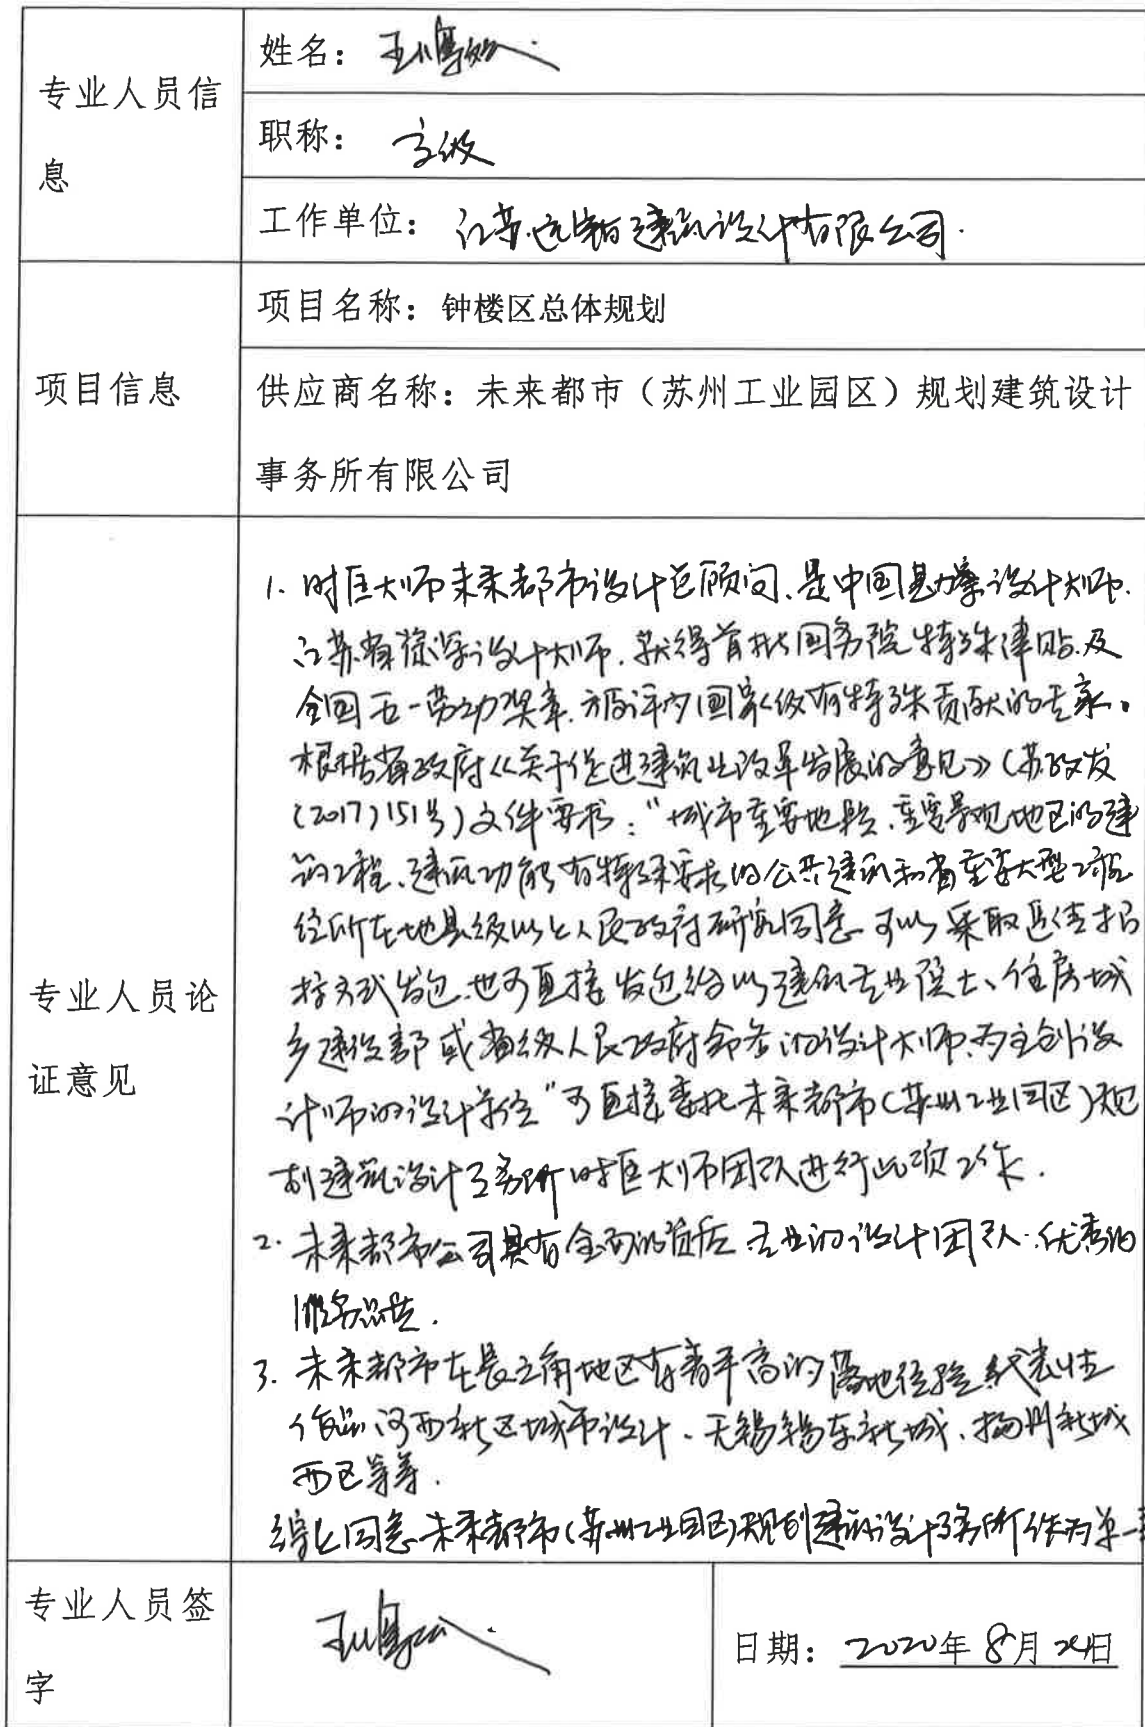 专业人员信息
姓名：
职称：高级
工作单位：江苏 建筑设计有限公司.
项目信息
项目名称：钟楼区总体规划
供应商名称：未来都市（苏州工业园区）规划建筑设计
事务所有限公司
专业人员论证意见
1. 时匡大师未来都市设计总顾问、是中国勘察设计大师.
江苏省 设计大师. 获得首批国务院特殊津贴及
全国五一劳动奖章. 被评为国家级有特殊贡献的专家。
根据省政府《关于促进建筑业改革发展的意见》（苏政发
（2017）151号）文件要求："城市重要地段、重要景观地区的建
筑工程、建筑功能有特殊要求的公共建筑和省重要大型工程
经所在地县级以上人民政府研究同意 可以采取邀请招
标方式发包. 也可直接发包给以建筑专业院士、住房城
乡建设部或省级人民政府命名的设计大师、为主创设
计师的设计单位"可直接委托未来都市（苏州工业园区）规
划建筑设计事务所时匡大师团队进行此项工作.
2. 未来都市公司具有全面的资质 专业的设计团队. 优秀的
服务品质.
3. 未来都市在长三角地区有着丰富的落地经验 代表性
作品 河西新区城市设计、无锡锡东新城、扬州新城
西区等等.
综上同意未来都市（苏州工业园区）规划建筑设计事务所作为单一
专业人员签字
日期：2020年8月 日